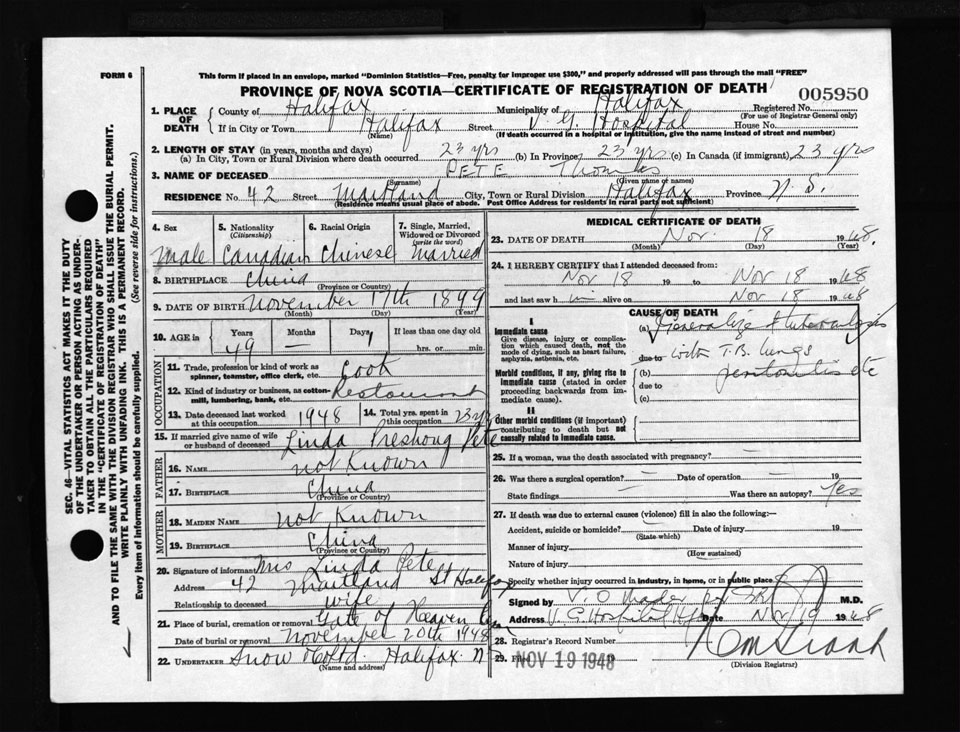 FORM 6
This form if placed in an envelope, marked "Dominion Statistics—Free, penalty for improper use $300," and properly addressed will pass through the mail "FREE"
PROVINCE OF NOVA SCOTIA—CERTIFICATE OF REGISTRATION OF DEATH
005950
1. PLACE OF DEATH
County of Halifax Municipality of Halifax Registered No.
(For use of Registrar General only)
If in City or Town Halifax Street V. G. Hospital House No.
(Name) (If death occurred in a hospital or institution, give the name instead of street and number)
2. LENGTH OF STAY (in years, months and days)
(a) In City, Town or Rural Division where death occurred 23 yrs (b) In Province 23 yrs (c) In Canada (if immigrant) 23 yrs
3. NAME OF DECEASED PETE Thomas
(Surname) (Given name or names)
RESIDENCE No. 42 Street Maitland City, Town or Rural Division Halifax Province N. S.
(Residence means usual place of abode. Post Office Address for residents in rural parts not sufficient)
4. Sex
Male
5. Nationality (Citizenship)
Canadian
6. Racial Origin
Chinese
7. Single, Married, Widowed or Divorced (write the word)
Married
8. BIRTHPLACE China
(Province or Country)
9. DATE OF BIRTH November 17th 1899
(Month) (Day) (Year)
10. AGE in Years Months Days If less than one day old
49 — 1 hrs. or min.
OCCUPATION
11. Trade, profession or kind of work as spinner, teamster, office clerk, etc. Cook
12. Kind of industry or business, as cotton-mill, lumbering, bank, etc. Restaurant
13. Date deceased last worked at this occupation 1948
14. Total yrs. spent in this occupation 23 yrs
15. If married give name of wife or husband of deceased Linda Preshong Pete
FATHER
16. NAME not Known
17. BIRTHPLACE China
(Province or Country)
MOTHER
18. MAIDEN NAME not Known
19. BIRTHPLACE China
(Province or Country)
20. Signature of informant Mrs Linda Pete
Address 42 Maitland St Halifax
Relationship to deceased wife
21. Place of burial, cremation or removal Gate of Heaven
Date of burial or removal November 20th 1948
22. UNDERTAKER Snow & Co Ltd. Halifax N S
(Name and address)
MEDICAL CERTIFICATE OF DEATH
23. DATE OF DEATH Nov. 18 1948.
(Month) (Day) (Year)
24. I HEREBY CERTIFY that I attended deceased from:
Nov 18 19 to Nov 18 1948
and last saw him alive on Nov 18 1948
CAUSE OF DEATH
I
Immediate cause
Give disease, injury or complication which caused death, not the mode of dying, such as heart failure, asphyxia, asthenia, etc.
(a) Generalized tuberculosis
due to with T.B. lungs
Morbid conditions, if any, giving rise to immediate cause (stated in order proceeding backwards from immediate cause).
(b) peritonitis etc
due to
(c)
II
Other morbid conditions (if important) contributing to death but not causally related to immediate cause.
25. If a woman, was the death associated with pregnancy? —
26. Was there a surgical operation? — Date of operation — 19
State findings — Was there an autopsy? Yes
27. If death was due to external causes (violence) fill in also the following:—
Accident, suicide or homicide? Date of injury 19
(State which)
Manner of injury
(How sustained)
Nature of injury
Specify whether injury occurred in industry, in home, or in public place
Signed by M.D.
Address V. G. Hospital Hfx Date Nov 19 1948
28. Registrar's Record Number
29. Filed NOV 19 1948
(Division Registrar)
SEC. 46—VITAL STATISTICS ACT MAKES IT THE DUTY
OF THE UNDERTAKER OR PERSON ACTING AS UNDER-
TAKER TO OBTAIN ALL THE PARTICULARS REQUIRED
IN THE "CERTIFICATE OF REGISTRATION OF DEATH"
AND TO FILE THE SAME WITH THE DIVISION REGISTRAR WHO SHALL ISSUE THE BURIAL PERMIT.
WRITE PLAINLY WITH UNFADING INK. THIS IS A PERMANENT RECORD.
Every item of information should be carefully supplied. (See reverse side for instructions.)